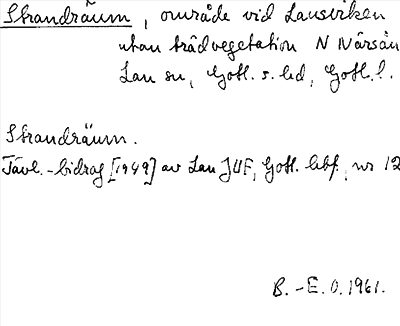 Strandräum, område vid Lausviken
utan trädvegetation N Närsån
Lau sn, Gotl. s. hd, Gotl. l.
Strandräum.
Tävl.-bidrag [1949] av Lau JUF, Gotl. hbf., nr 12
B.-E. O. 1961.